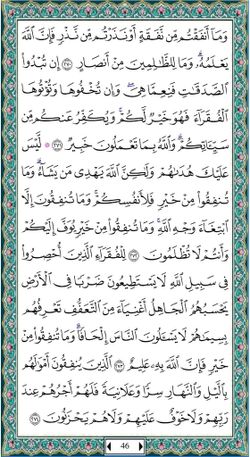 وَمَآ أَنفَقْتُم مِّن نَّفَقَةٍ أَوْ نَذَرْتُم مِّن نَّذْرٍ فَإِنَّ ٱللَّهَ
يَعْلَمُهُۥ ۗ وَمَا لِلظَّـٰلِمِينَ مِنْ أَنصَارٍ ٢٧٠ إِن تُبْدُوا۟
ٱلصَّدَقَـٰتِ فَنِعِمَّا هِىَ ۖ وَإِن تُخْفُوهَا وَتُؤْتُوهَا
ٱلْفُقَرَآءَ فَهُوَ خَيْرٌ لَّكُمْ ۚ وَيُكَفِّرُ عَنكُم مِّن
سَيِّـَٔاتِكُمْ ۗ وَٱللَّهُ بِمَا تَعْمَلُونَ خَبِيرٌ ٢٧١ ۞ لَّيْسَ
عَلَيْكَ هُدَىٰهُمْ وَلَـٰكِنَّ ٱللَّهَ يَهْدِى مَن يَشَآءُ ۗ وَمَا
تُنفِقُوا۟ مِنْ خَيْرٍ فَلِأَنفُسِكُمْ ۚ وَمَا تُنفِقُونَ إِلَّا
ٱبْتِغَآءَ وَجْهِ ٱللَّهِ ۚ وَمَا تُنفِقُوا۟ مِنْ خَيْرٍ يُوَفَّ إِلَيْكُمْ
وَأَنتُمْ لَا تُظْلَمُونَ ٢٧٢ لِلْفُقَرَآءِ ٱلَّذِينَ أُحْصِرُوا۟
فِى سَبِيلِ ٱللَّهِ لَا يَسْتَطِيعُونَ ضَرْبًا فِى ٱلْأَرْضِ
يَحْسَبُهُمُ ٱلْجَاهِلُ أَغْنِيَآءَ مِنَ ٱلتَّعَفُّفِ تَعْرِفُهُم
بِسِيمَـٰهُمْ لَا يَسْـَٔلُونَ ٱلنَّاسَ إِلْحَافًا ۗ وَمَا تُنفِقُوا۟ مِنْ
خَيْرٍ فَإِنَّ ٱللَّهَ بِهِۦ عَلِيمٌ ٢٧٣ ٱلَّذِينَ يُنفِقُونَ أَمْوَٰلَهُم
بِٱلَّيْلِ وَٱلنَّهَارِ سِرًّا وَعَلَانِيَةً فَلَهُمْ أَجْرُهُمْ عِندَ
رَبِّهِمْ وَلَا خَوْفٌ عَلَيْهِمْ وَلَا هُمْ يَحْزَنُونَ ٢٧٤
46